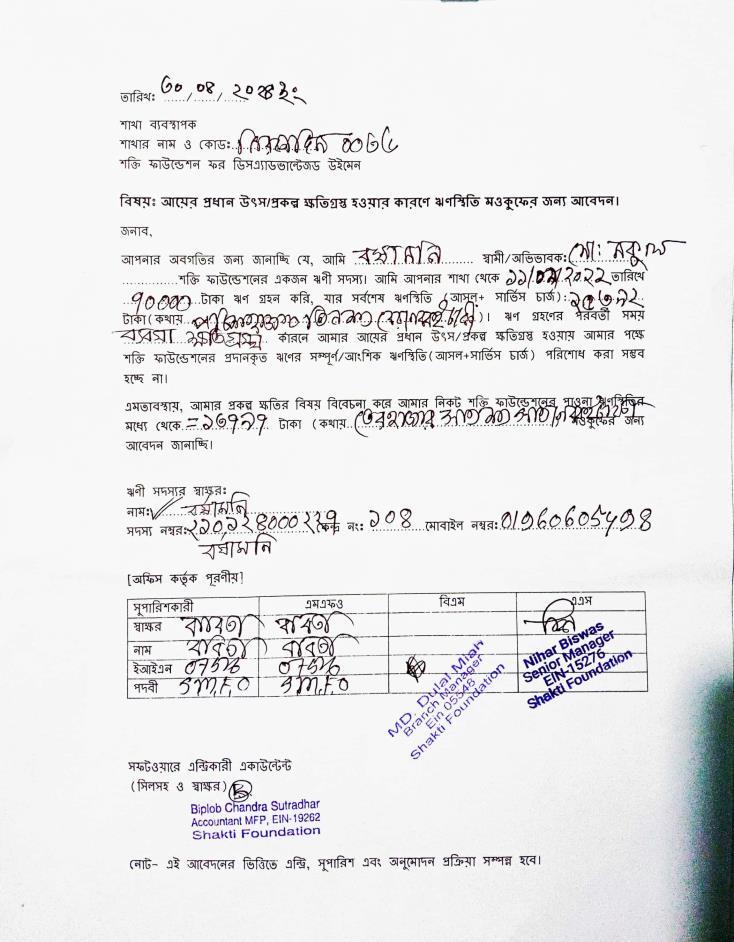 তারিখঃ ৩০,০৪, ২০২৪ইং
শাখা ব্যবস্থাপক
শাখার নাম ও কোডঃ
শক্তি ফাউন্ডেশন ফর ডিসএ্যাডভান্টেজড উইমেন
বিষয়ঃ আয়ের প্রধান উৎস/প্রকল্প ক্ষতিগ্রস্থ হওয়ার কারণে ঋণস্থিতি মওকুফের জন্য আবেদন।
জনাব,
আপনার অবগতির জন্য জানাচ্ছি যে, আমি বর্ষামনি স্বামী/অভিভাবকঃ মোঃ নকুল
শক্তি ফাউন্ডেশনের একজন ঋণী সদস্য। আমি আপনার শাখা থেকে তারিখে
৭০০০০ টাকা ঋণ গ্রহন করি, যার সর্বশেষ ঋণস্থিতি (আসল+ সার্ভিস চার্জ)ঃ
টাকা (কথায় )। ঋণ গ্রহণের পরবর্তী সময়
ক্ষতিগ্রস্থ কারনে আমার আয়ের প্রধান উৎস/প্রকল্প ক্ষতিগ্রস্থ হওয়ায় আমার পক্ষে
শক্তি ফাউন্ডেশনের প্রদানকৃত ঋণের সম্পূর্ণ/আংশিক ঋণস্থিতি(আসল+সার্ভিস চার্জ) পরিশোধ করা সম্ভব
হচ্ছে না।
এমতাবস্থায়, আমার প্রকল্প ক্ষতির বিষয় বিবেচনা করে আমার নিকট শক্তি ফাউন্ডেশনের পাওনা ঋণস্থিতির
মধ্যে থেকে টাকা (কথায় মওকুফের জন্য
আবেদন জানাচ্ছি।
ঋণী সদস্যের স্বাক্ষরঃ
নামঃ বর্ষামনি
সদস্য নম্বরঃ কেন্দ্র নং: ১০৪ মোবাইল নম্বরঃ 01960605498
বর্ষামনি
[অফিস কর্তৃক পূরণীয়]
সুপারিশকারী এমএফও বিএম এএস
স্বাক্ষর ববিতা ববিতা
নাম ববিতা ববিতা
ইআইএন 07516 07516
পদবী S.M.F.O S.M.F.O
MD. Dulal Miah
Branch Manager
Ein 05548
Shakti Foundation
Nihar Biswas
Senior Manager
EIN-15276
Shakti Foundation
সফটওয়ারে এন্ট্রিকারী একাউন্টেন্ট
(সিলসহ ও স্বাক্ষর)
Biplob Chandra Sutradhar
Accountant MFP, EIN-19262
Shakti Foundation
নোট- এই আবেদনের ভিত্তিতে এন্ট্রি, সুপারিশ এবং অনুমোদন প্রক্রিয়া সম্পন্ন হবে।